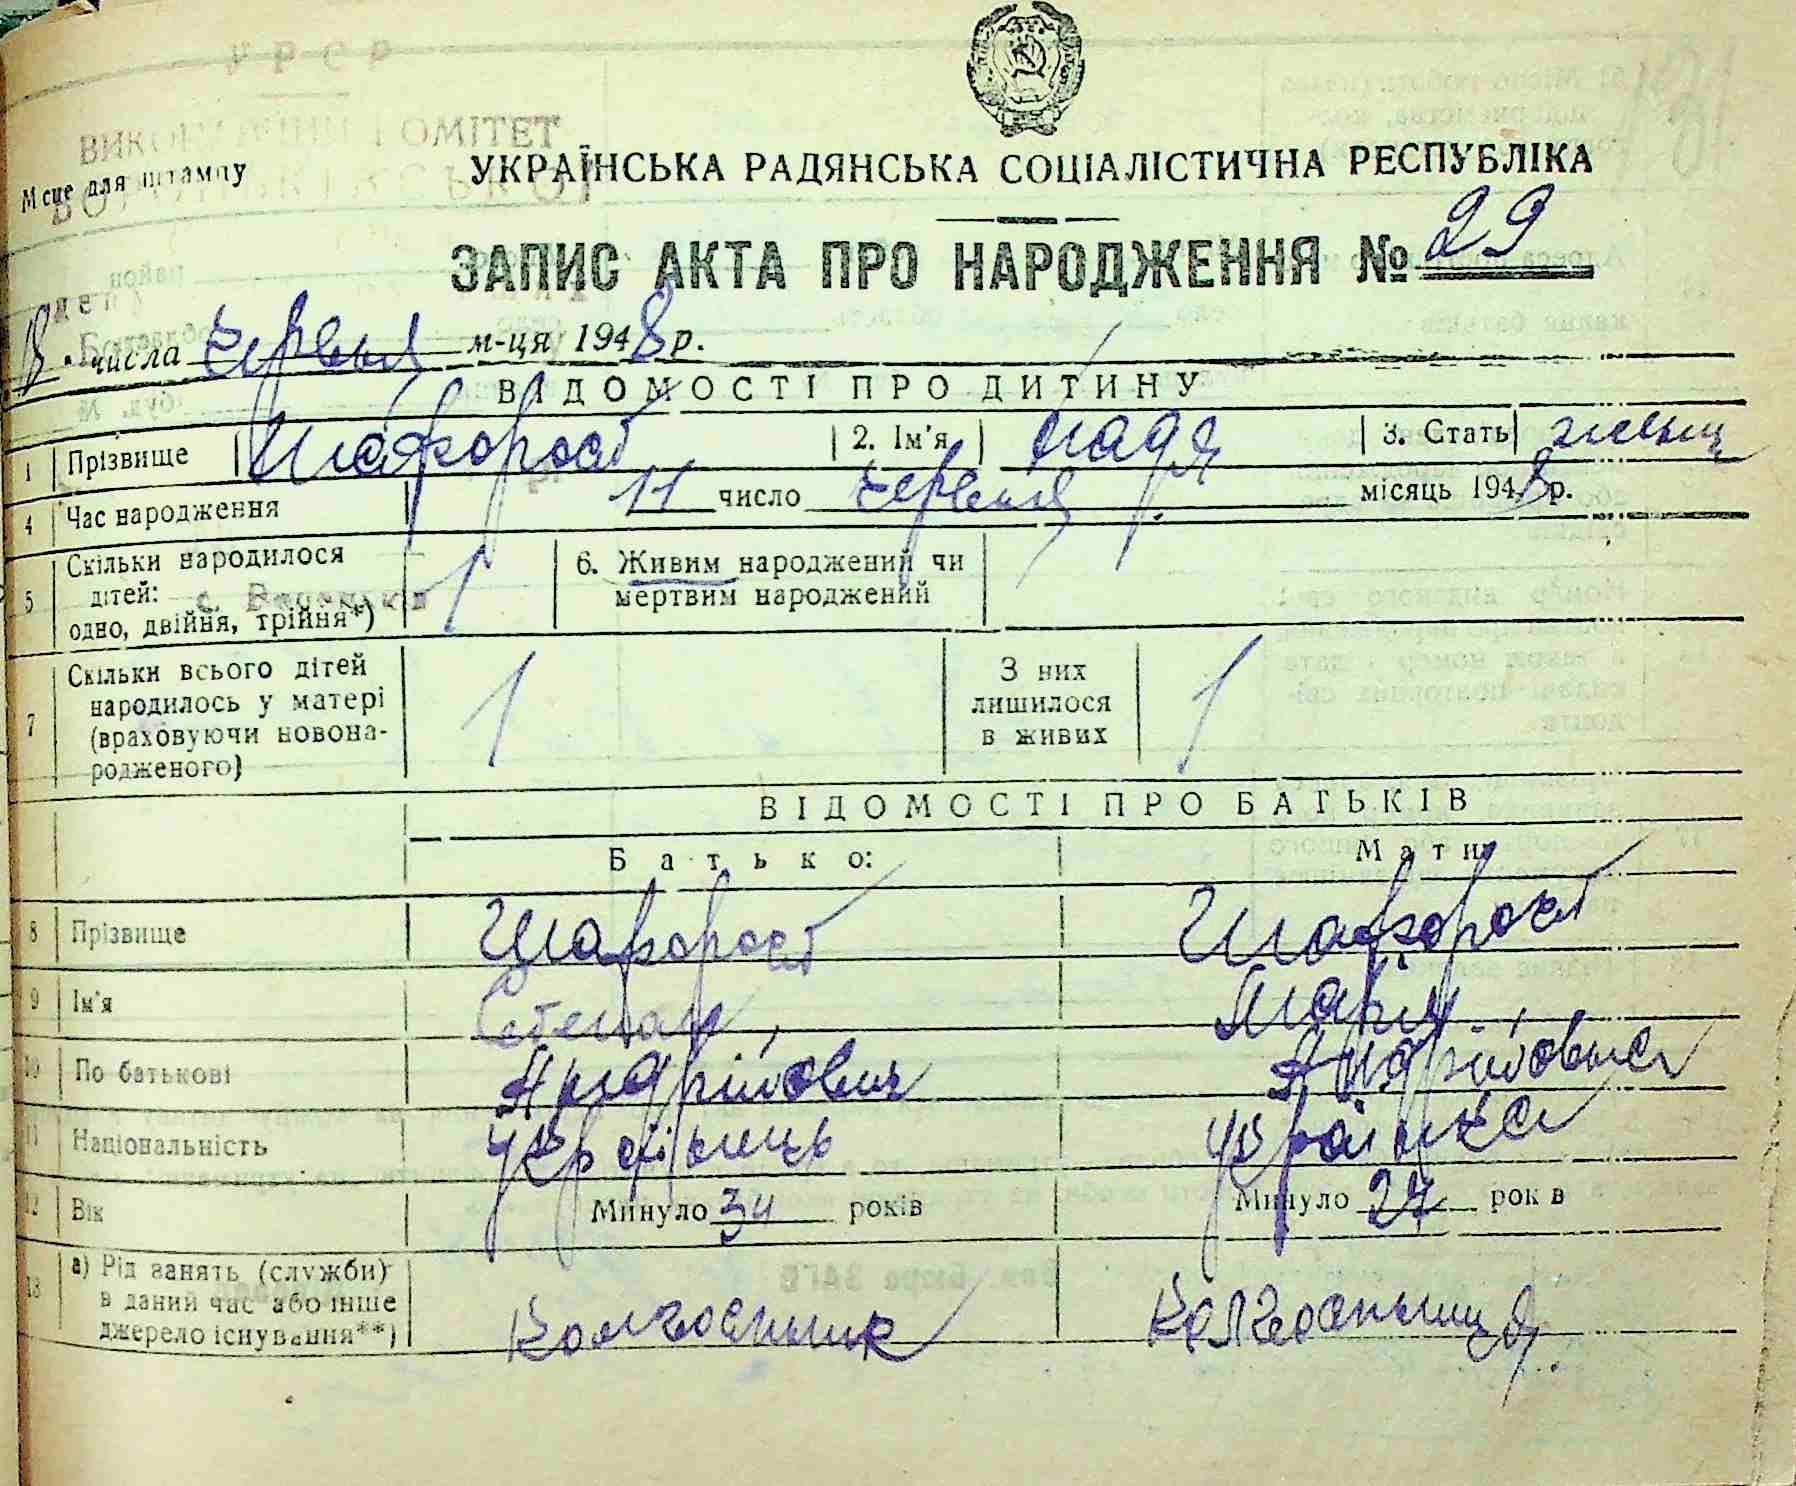 ВИКОНАВЧИЙ КОМІТЕТ
Місце для штампу
УКРАЇНСЬКА РАДЯНСЬКА СОЦІАЛІСТИЧНА РЕСПУБЛІКА
ЗАПИС АКТА ПРО НАРОДЖЕННЯ № 29
числа червня м-ця 1948 р.
ВІДОМОСТІ ПРО ДИТИНУ
1 Прізвище Шафорост 2. Ім'я Надя 3. Стать
4 Час народження 11 число червня місяць 1948 р.
5 Скільки народилося дітей: одно, двійня, трійня*) 1 6. Живим народжений чи мертвим народжений
7 Скільки всього дітей народилось у матері (враховуючи новонародженого) 1 З них лишилося в живих 1
ВІДОМОСТІ ПРО БАТЬКІВ
Батько: Мати
8 Прізвище Шафорост Шафорост
9 Ім'я Степан Марія
10 По батькові Андрійович Андрійовна
11 Національність українець українка
12 Вік Минуло 34 років Минуло 27 рок в
13 а) Рід занять (служби) в даний час або інше джерело існування**) Колгоспник Колгоспниця